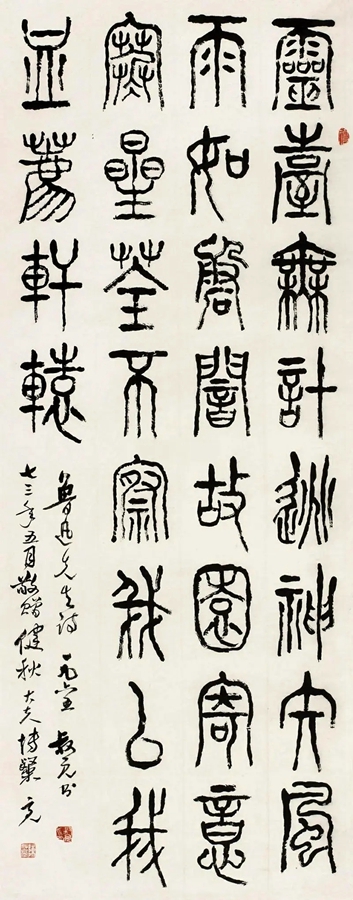 靈臺無計逃神矢風
雨如磐闇故園寄意
寒星荃不察我以我
血薦軒轅
魯迅先生詩
七三年五月敬贈健秋大夫博粲